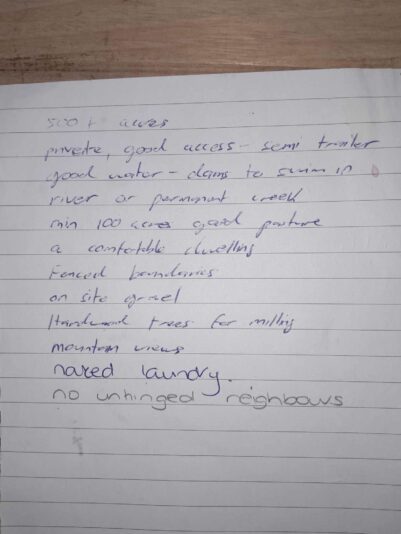 500+ acres
private, good access - semi trailer
good water - dams to swim in
river or permanant creek
min 100 acres good pasture
a comfortable dwelling
Fenced boundaries
on site gravel
Hardwood trees for milling
mountain views
naked laundry.
no unhinged neighbours